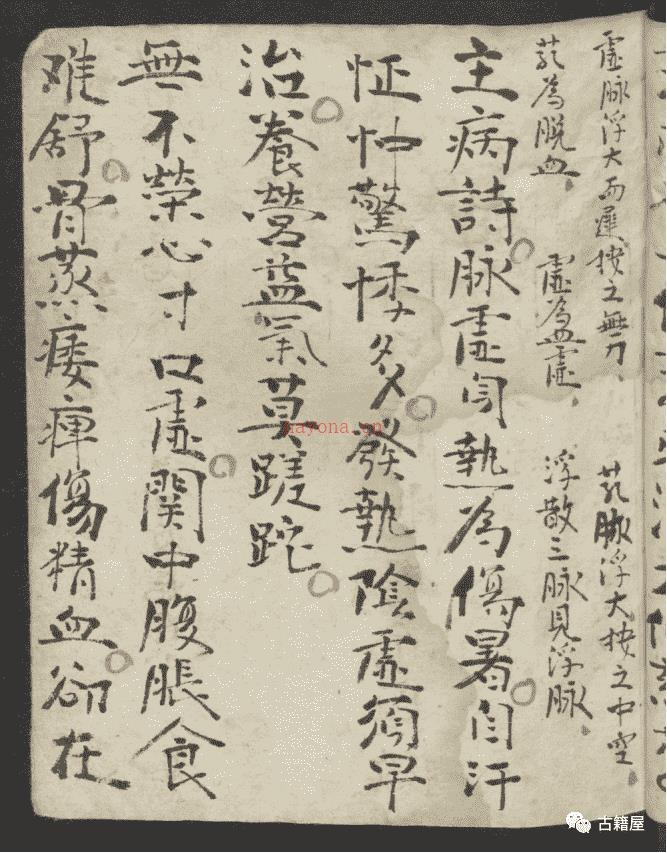 虛脉浮大而遲按之無力、芤脉浮大按之中空、
芤為脱血、虛為血虛、浮散三脉見浮脉、
主病詩脉虛身熱為傷暑自汗
怔忡驚悸多發熱陰虛須早
治養營益氣莫蹉跎
無不榮心寸口虛関中腹脹食
难舒骨蒸痿痺傷精血卻在
nayona.cn
古籍屋